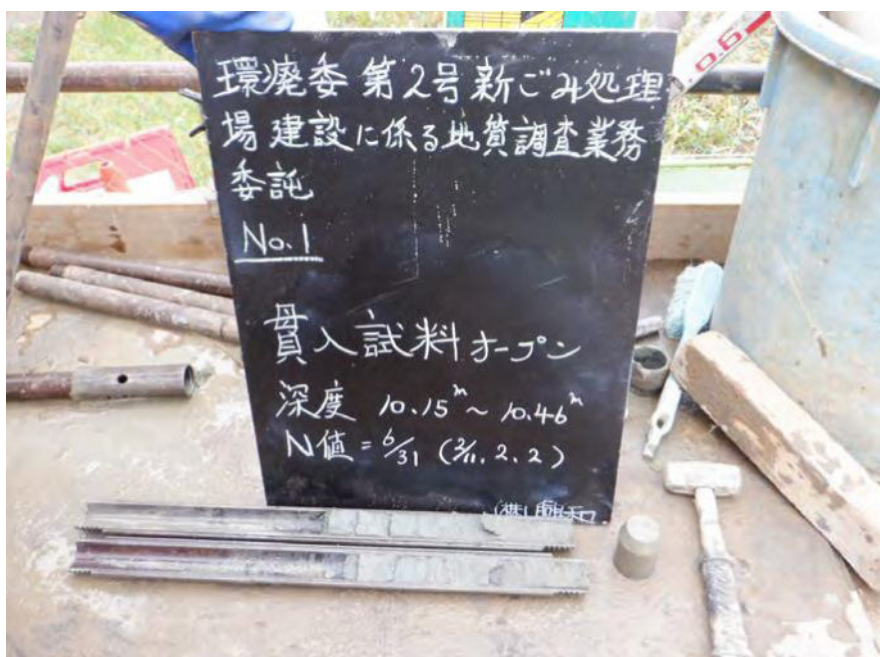 環廃委 第2号 新ごみ処理
場建設に係る地質調査業務
委託
No.1
貫入試料オープン
深度 10.15m~10.46m
N値=6/31 (2/11.2.2)
0.6